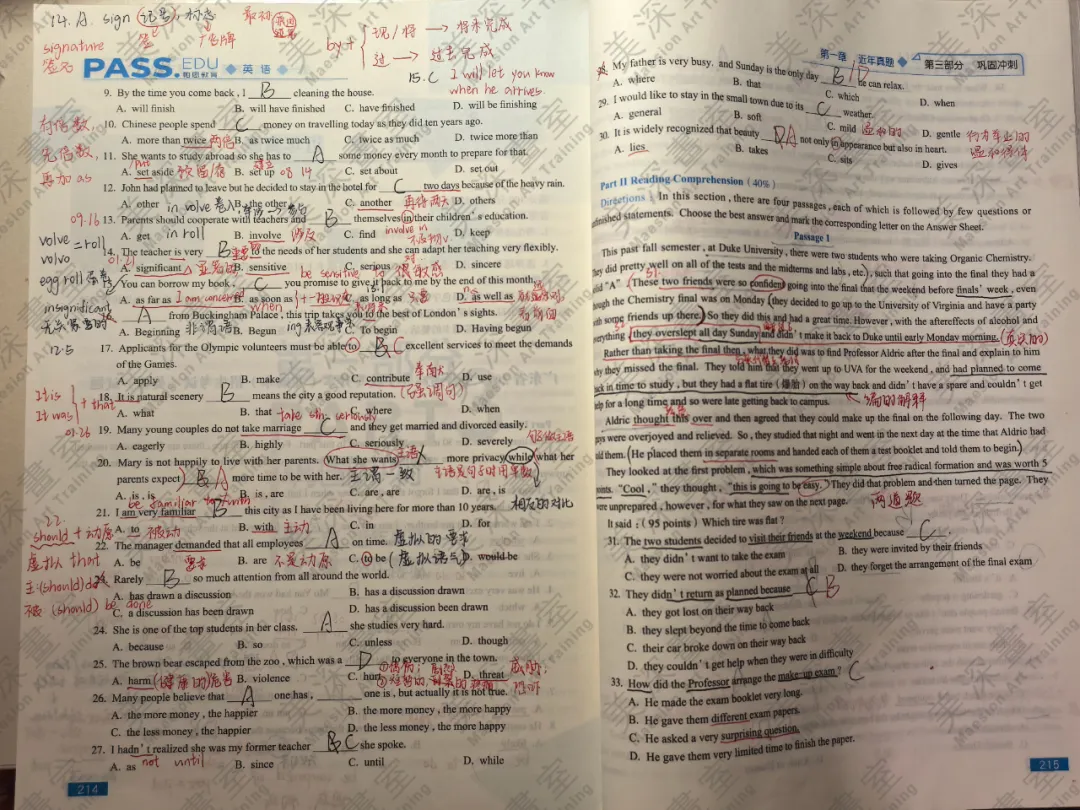 14. A. sign 记号, 标志
signature
签名
by + 现/将 → 将来完成
过 → 过去完成
15. C I will let you know
when he arrives.
PASS.EDU
◆ 英 语 ◆
9. By the time you come back , I B cleaning the house.
A. will finish B. will have finished C. have finished D. will be finishing
10. Chinese people spend C money on travelling today as they did ten years ago.
A. more than twice 两倍 B. as twice much C. twice as much D. twice more than
有倍数,
先倍数,
再加 as
11. She wants to study abroad so she has to A some money every month to prepare for that.
A. set aside B. set up 建立 08 19 C. set about D. set out
12. John had planned to leave but he decided to stay in the hotel for C two days because of the heavy rain.
A. other B. the other C. another 再待两天 D. others
09.16
in volve
in roll
13. Parents should cooperate with teachers and B themselves in their children's education.
A. get B. involve 涉及 C. find involve in D. keep
volve = roll
volvo
egg roll 蛋卷
14. The teacher is very B to the needs of her students and she can adapt her teaching very flexibly.
A. significant B. sensitive be sensitive to 很敏感 C. serious D. sincere
You can borrow my book , C you promise to give it back to me by the end of this month.
A. as far as I am concerned B. as soon as C. as long as 只要 D. as well as
insignificant
A from Buckingham Palace , this trip takes you to the best of London's sights.
A. Beginning 非谓语 B. Begun C. To begin D. Having begun
12.5
17. Applicants for the Olympic volunteers must be able to B C excellent services to meet the demands
of the Games.
A. apply B. make C. contribute D. use
It is
It was } + that
18. It is natural scenery B means the city a good reputation. (强调句)
A. what B. that C. where D. when
take sth seriously
09.26
19. Many young couples do not take marriage C and they get married and divorced easily.
A. eagerly B. highly C. seriously D. severely
20. Mary is not happily to live with her parents. What she wants 主语 more privacy while what her
parents expect B A more time to be with her. 主谓一致 主语是句子时用单数
A. is , is B. is , are C. are , are D. are , is 相反的对比
be familiar to with
21. I am very familiar B this city as I have been living here for more than 10 years.
A. to 被动 B. with 主动 C. in D. for
22.
should + 动原
虚拟 that
22. The manager demanded that all employees A on time. 虚拟的要求
A. be 要求 B. are 不是动原 C. to be (虚拟语气) D. would be
主:(should) do
被 (should) be done
23. Rarely B so much attention from all around the world.
A. has drawn a discussion B. has a discussion drawn
C. a discussion has been drawn D. has a discussion been drawn
24. She is one of the top students in her class. A she studies very hard.
A. because B. so C. unless D. though
25. The brown bear escaped from the zoo , which was a D to everyone in the town.
A. harm B. violence C. hurt D. threat 威胁;
26. Many people believe that A one has , one is , but actually it is not true.
A. the more money , the happier B. the more money , the more happy
C. the less money , the happier D. the less money , the more happy
27. I hadn't realized she was my former teacher B C she spoke.
A. as B. since C. until D. while
not until
214
第一章 近年真题 ◆ 第三部分 巩固冲刺
My father is very busy. and Sunday is the only day B D he can relax.
A. where B. that C. which D. when
29. I would like to stay in the small town due to its C weather.
A. general B. soft C. mild 温和的 D. gentle
30. It is widely recognized that beauty D A not only in appearance but also in heart.
A. lies B. takes C. sits D. gives
Part II Reading Comprehension ( 40% )
Directions : In this section , there are four passages , each of which is followed by few questions or
unfinished statements. Choose the best answer and mark the corresponding letter on the Answer Sheet.
Passage 1
This past fall semester , at Duke University , there were two students who were taking Organic Chemistry.
They did pretty well on all of the tests and the midterms and labs , etc. ) , such that going into the final they had a
solid "A". (These two friends were so confident going into the final that the weekend before finals' week , even
though the Chemistry final was on Monday (they decided to go up to the University of Virginia and have a party
with some friends up there.) So they did this and had a great time. However , with the aftereffects of alcohol and
everything , they overslept all day Sunday and didn't make it back to Duke until early Monday morning. (真实的)
Rather than taking the final then , what they did was to find Professor Aldric after the final and explain to him
why they missed the final. They told him that they went up to UVA for the weekend , and had planned to come
back in time to study , but they had a flat tire ( 爆胎 ) on the way back and didn't have a spare and couldn't get
help for a long time and so were late getting back to campus. 编的解释
Aldric thought this over and then agreed that they could make up the final on the following day. The two
guys were overjoyed and relieved. So , they studied that night and went in the next day at the time that Aldric had
told them. (He placed them in separate rooms and handed each of them a test booklet and told them to begin.)
They looked at the first problem , which was something simple about free radical formation and was worth 5
points. "Cool ," they thought , "this is going to be easy." They did that problem and then turned the page. They
were unprepared , however , for what they saw on the next page. 两道题
It said : ( 95 points ) Which tire was flat ?
31. The two students decided to visit their friends at the weekend because C .
A. they didn't want to take the exam B. they were invited by their friends
C. they were not worried about the exam at all D. they forget the arrangement of the final exam
32. They didn't return as planned because C B
A. they got lost on their way back
B. they slept beyond the time to come back
C. their car broke down on their way back
D. they couldn't get help when they were in difficulty
33. How did the Professor arrange the make-up exam ? C
A. He made the exam booklet very long.
B. He gave them different exam papers.
C. He asked a very surprising question.
D. He gave them very limited time to finish the paper.
215